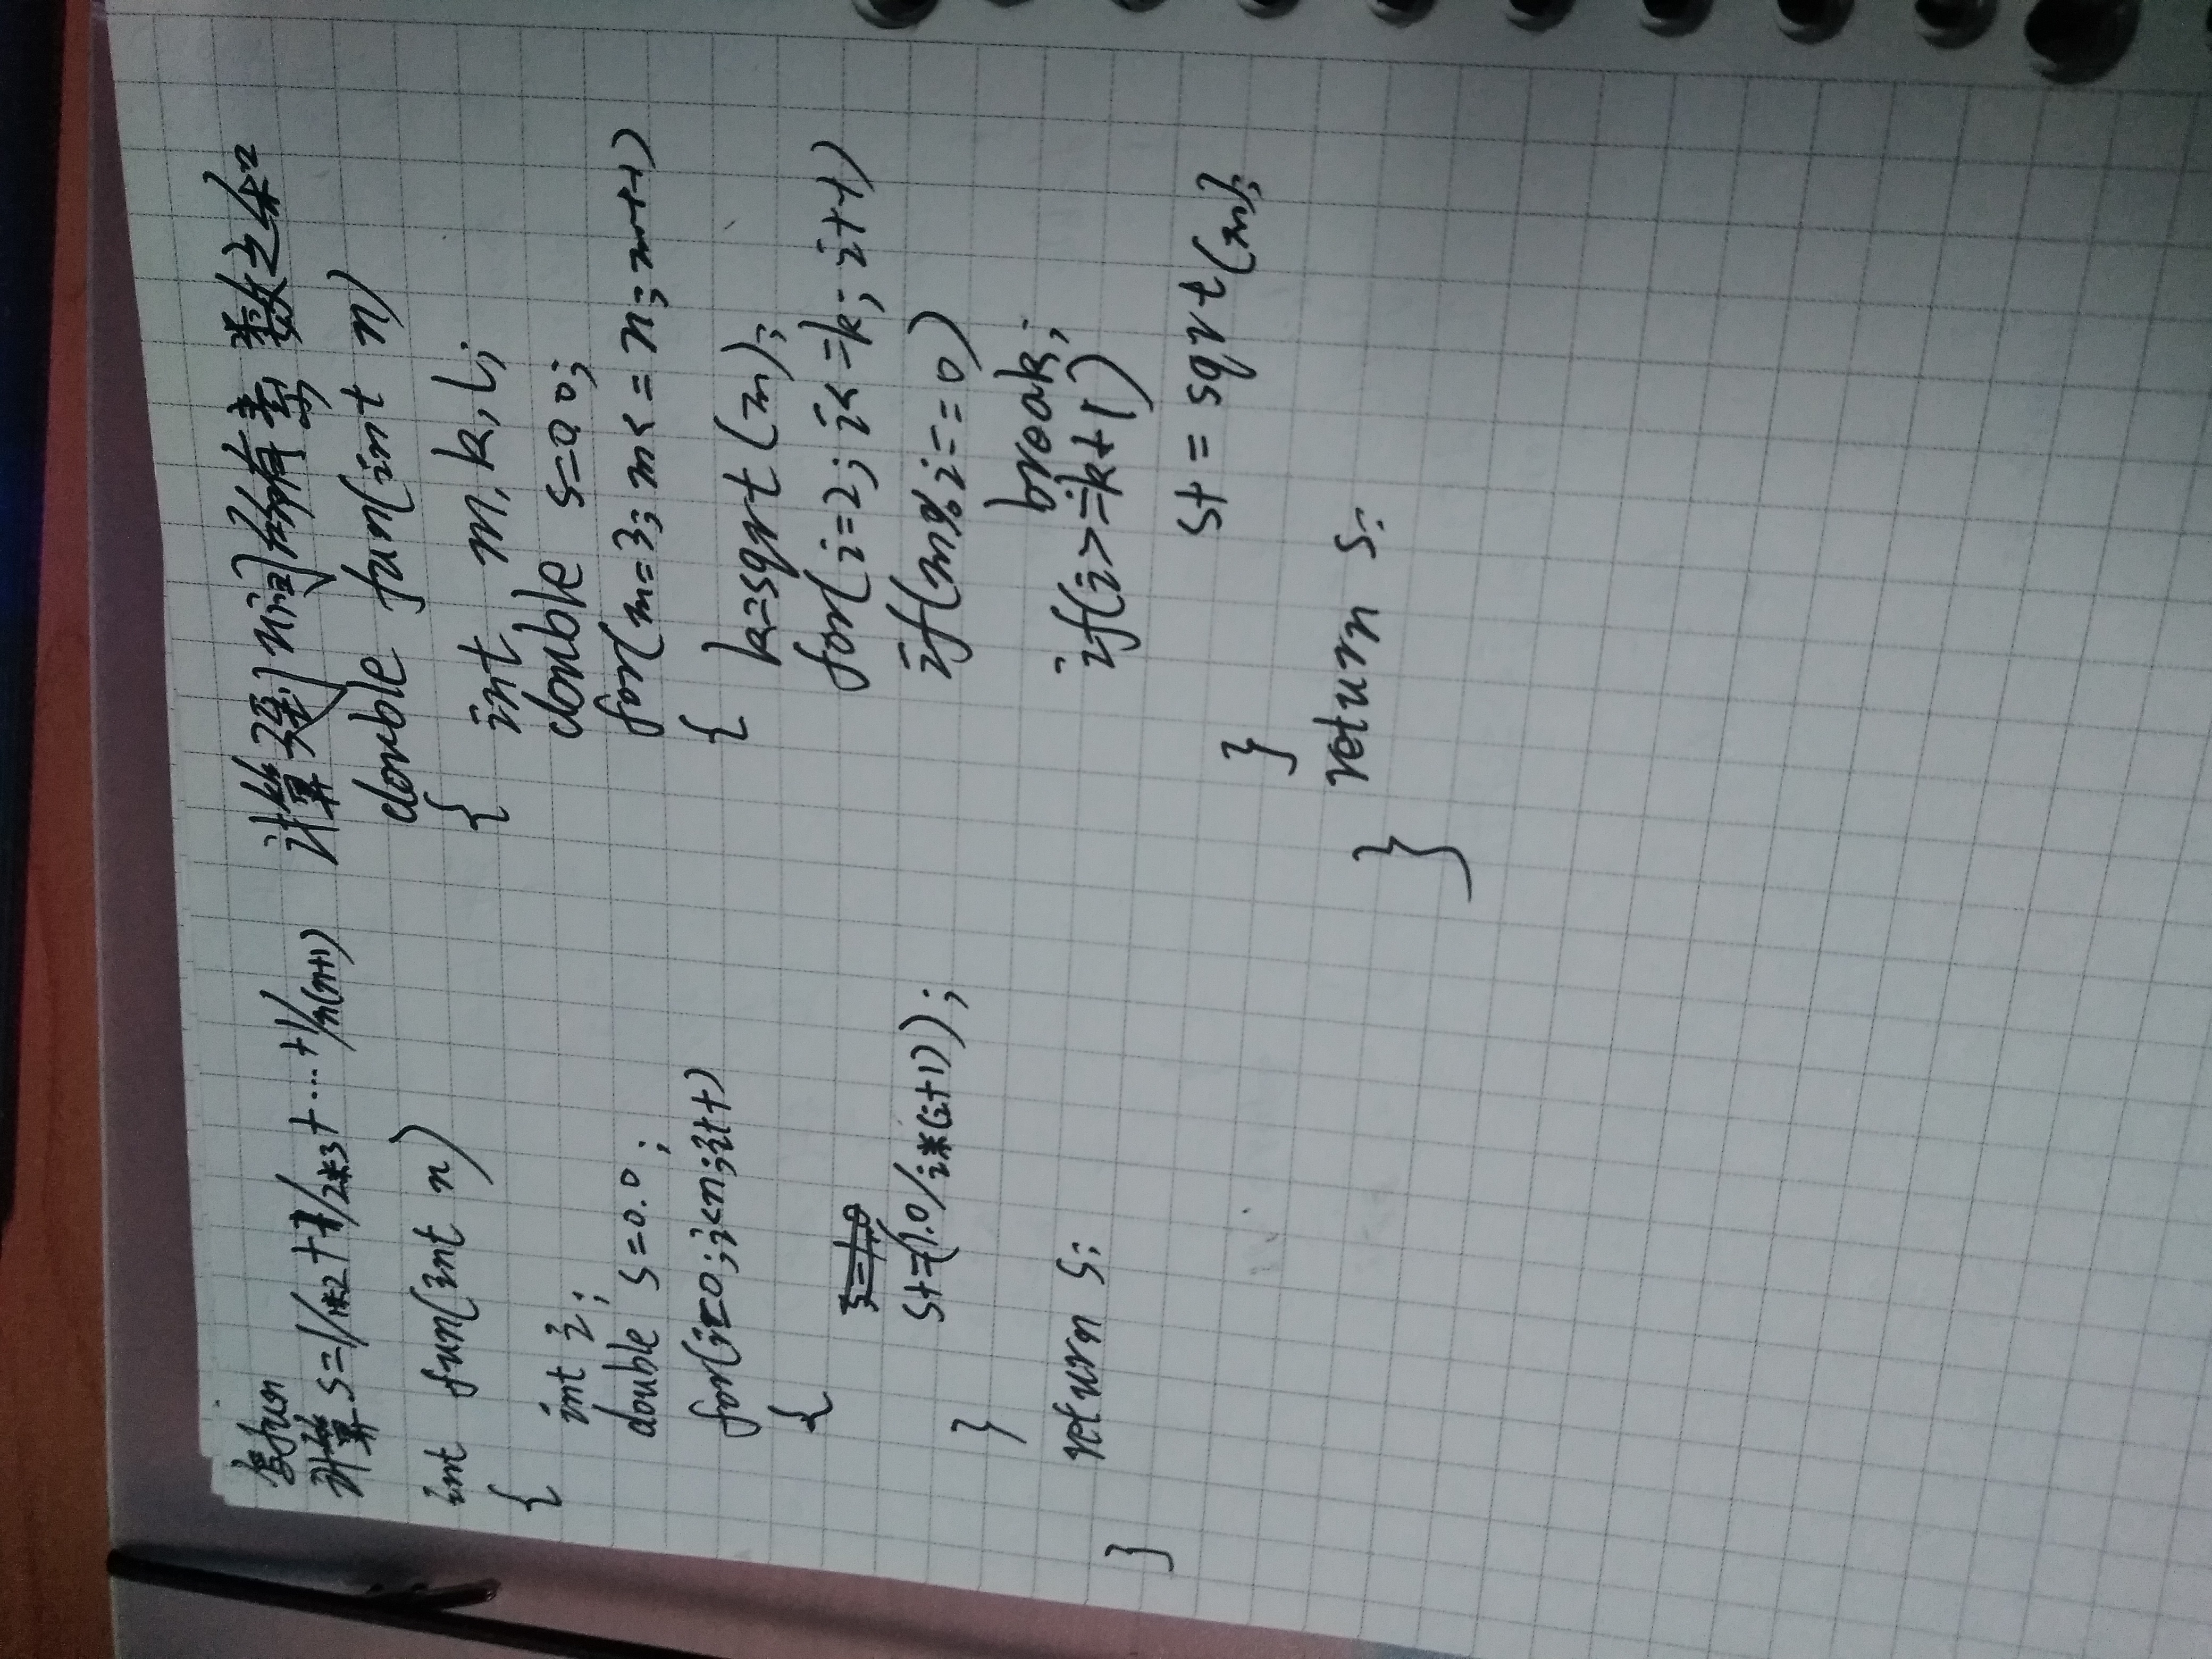 fun
计算 s=1/1*2+1/2*3+...+1/n(n+1)
int fun(int n)
{
int i;
double s=0.0;
for(i=0;i<n;i++)
{
s+=(1.0/i*(i+1));
}
return s;
}
计算3到n间所有素数之
double fun(int n)
{
int m,k,i;
double s=0.0;
for(m=3;m<=n;m++)
{
k=sqrt(m);
for(i=2;i<=k;i++)
if(m%i==0)
break;
if(i>=k+1)
s+=sqrt(m);
}
return s;
}